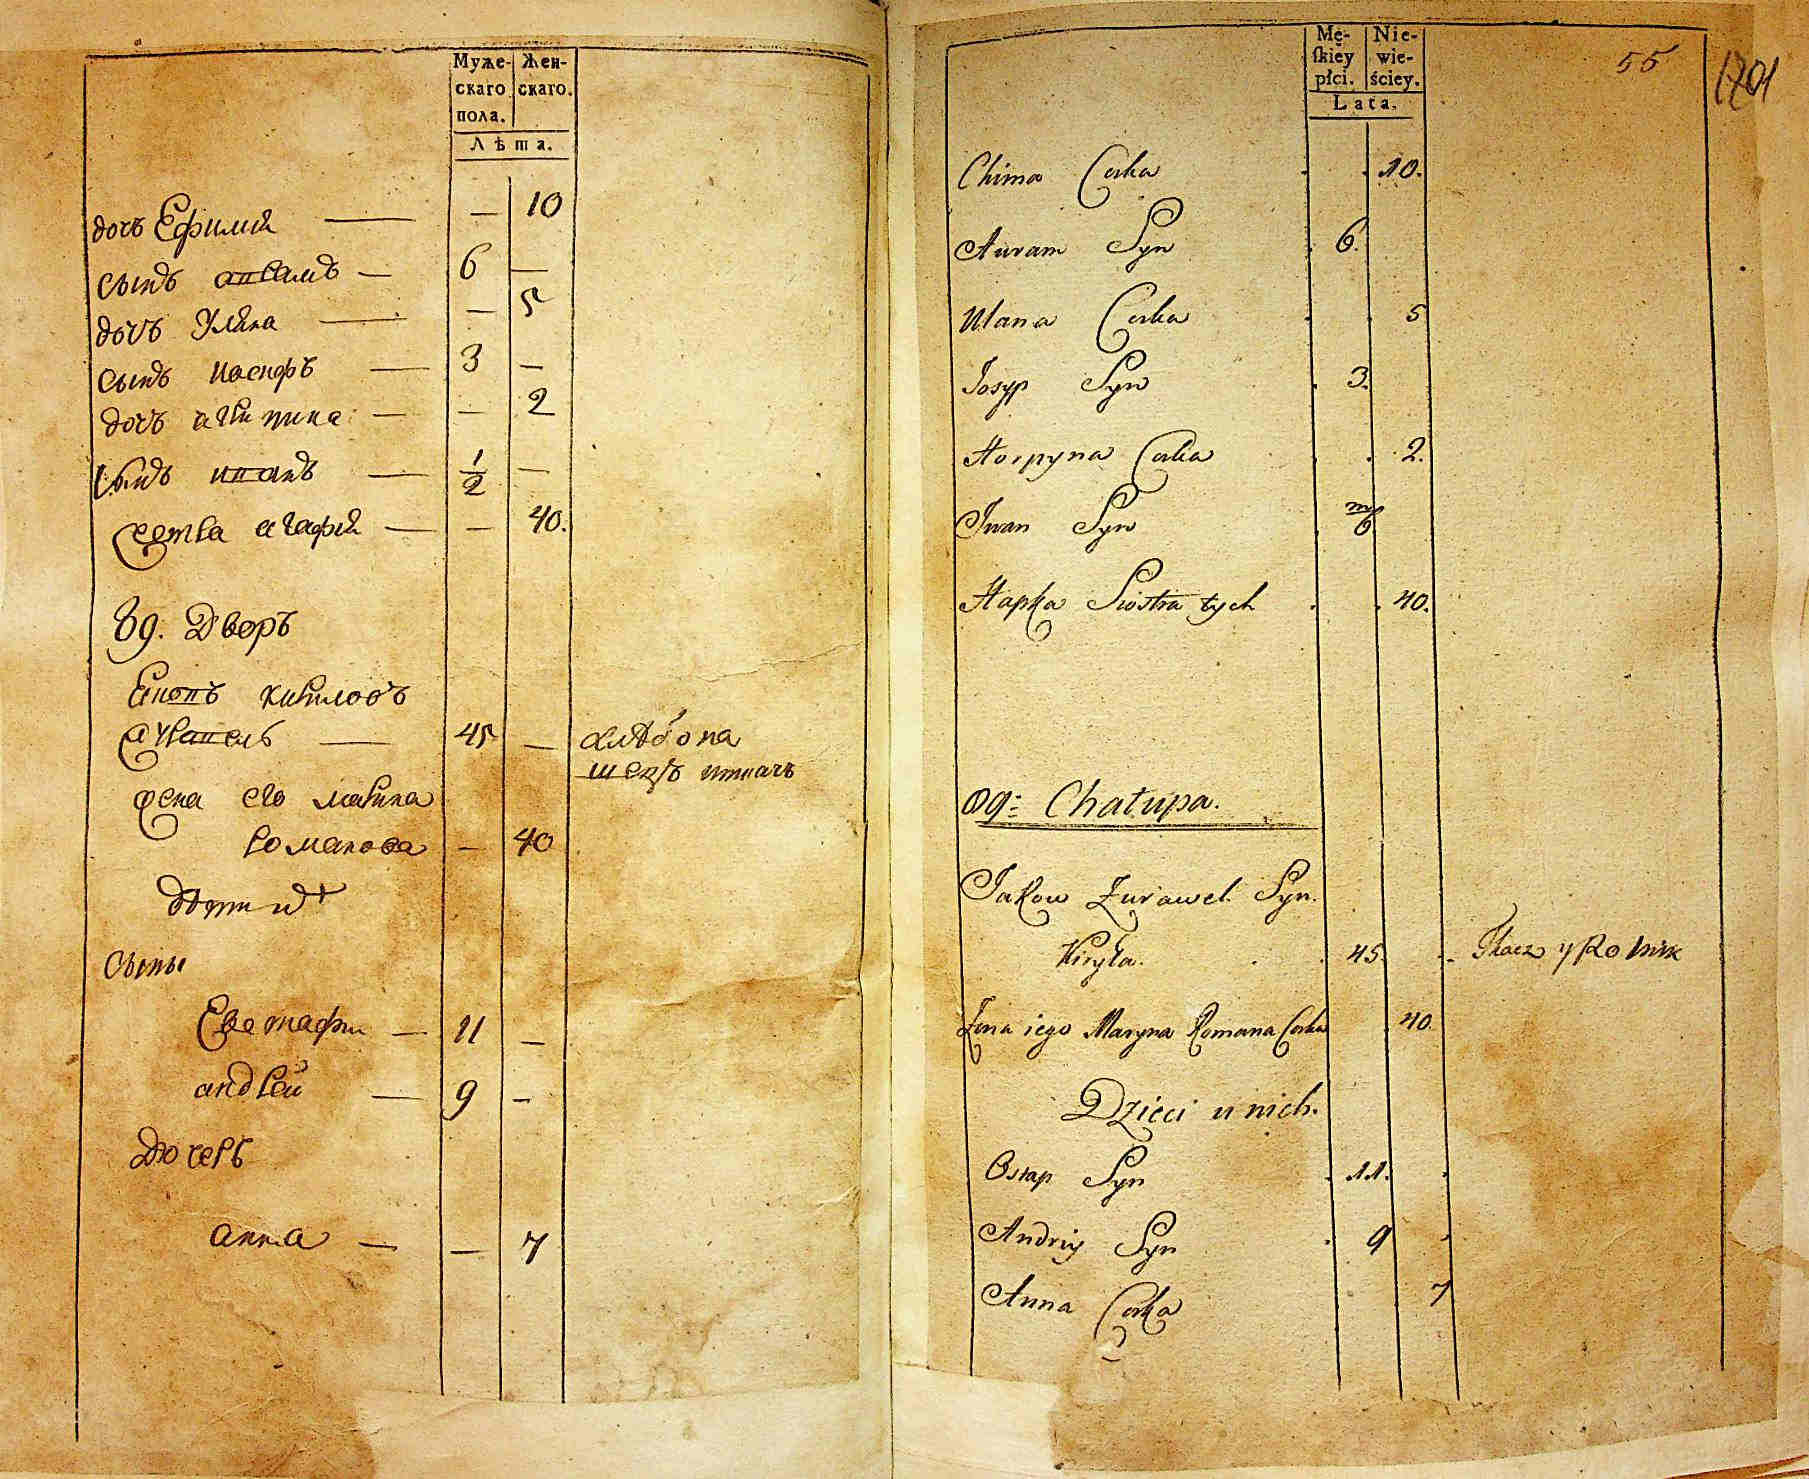 Муже-
скаго
пола.
Жен-
скаго.
Лѣта.
дочь Ефимия — — 10
сынъ аврамъ — 6 —
дочъ Уляна — — 5
сынъ иосифъ — 3 —
дочъ агрипина — — 2
сынъ иванъ — 1/2 —
сестра агафия — — 40.
89. Дворъ
яковъ кириловъ
журавель — 45 — хлѣбопа
шецъ иткачъ
жена его марина
романова — 40
дѣти ихъ
сыны
Евстафи — 11 —
андрей — 9 —
Дочерь
анна — — 7
Mę-
ſkiey
płci.
Nie-
wie-
ściey.
Lata.
55
1701
Chima Corka . . 10.
Auram Syn . 6.
Ulana Corka . . 5
Josyp Syn . 3.
Horpyna Corka . . 2.
Jwan Syn . m/6
Hapka Siostra tych . . 40.
89: Chałupa.
Jakow Żurawel. Syn.
Kiryła. . . 45. . Tkacz y Rolnik
Żona iego Maryna Romana Corka 40.
Dzieci u nich.
Ostap Syn . 11. .
Andriy Syn . 9 .
Anna Corka 7